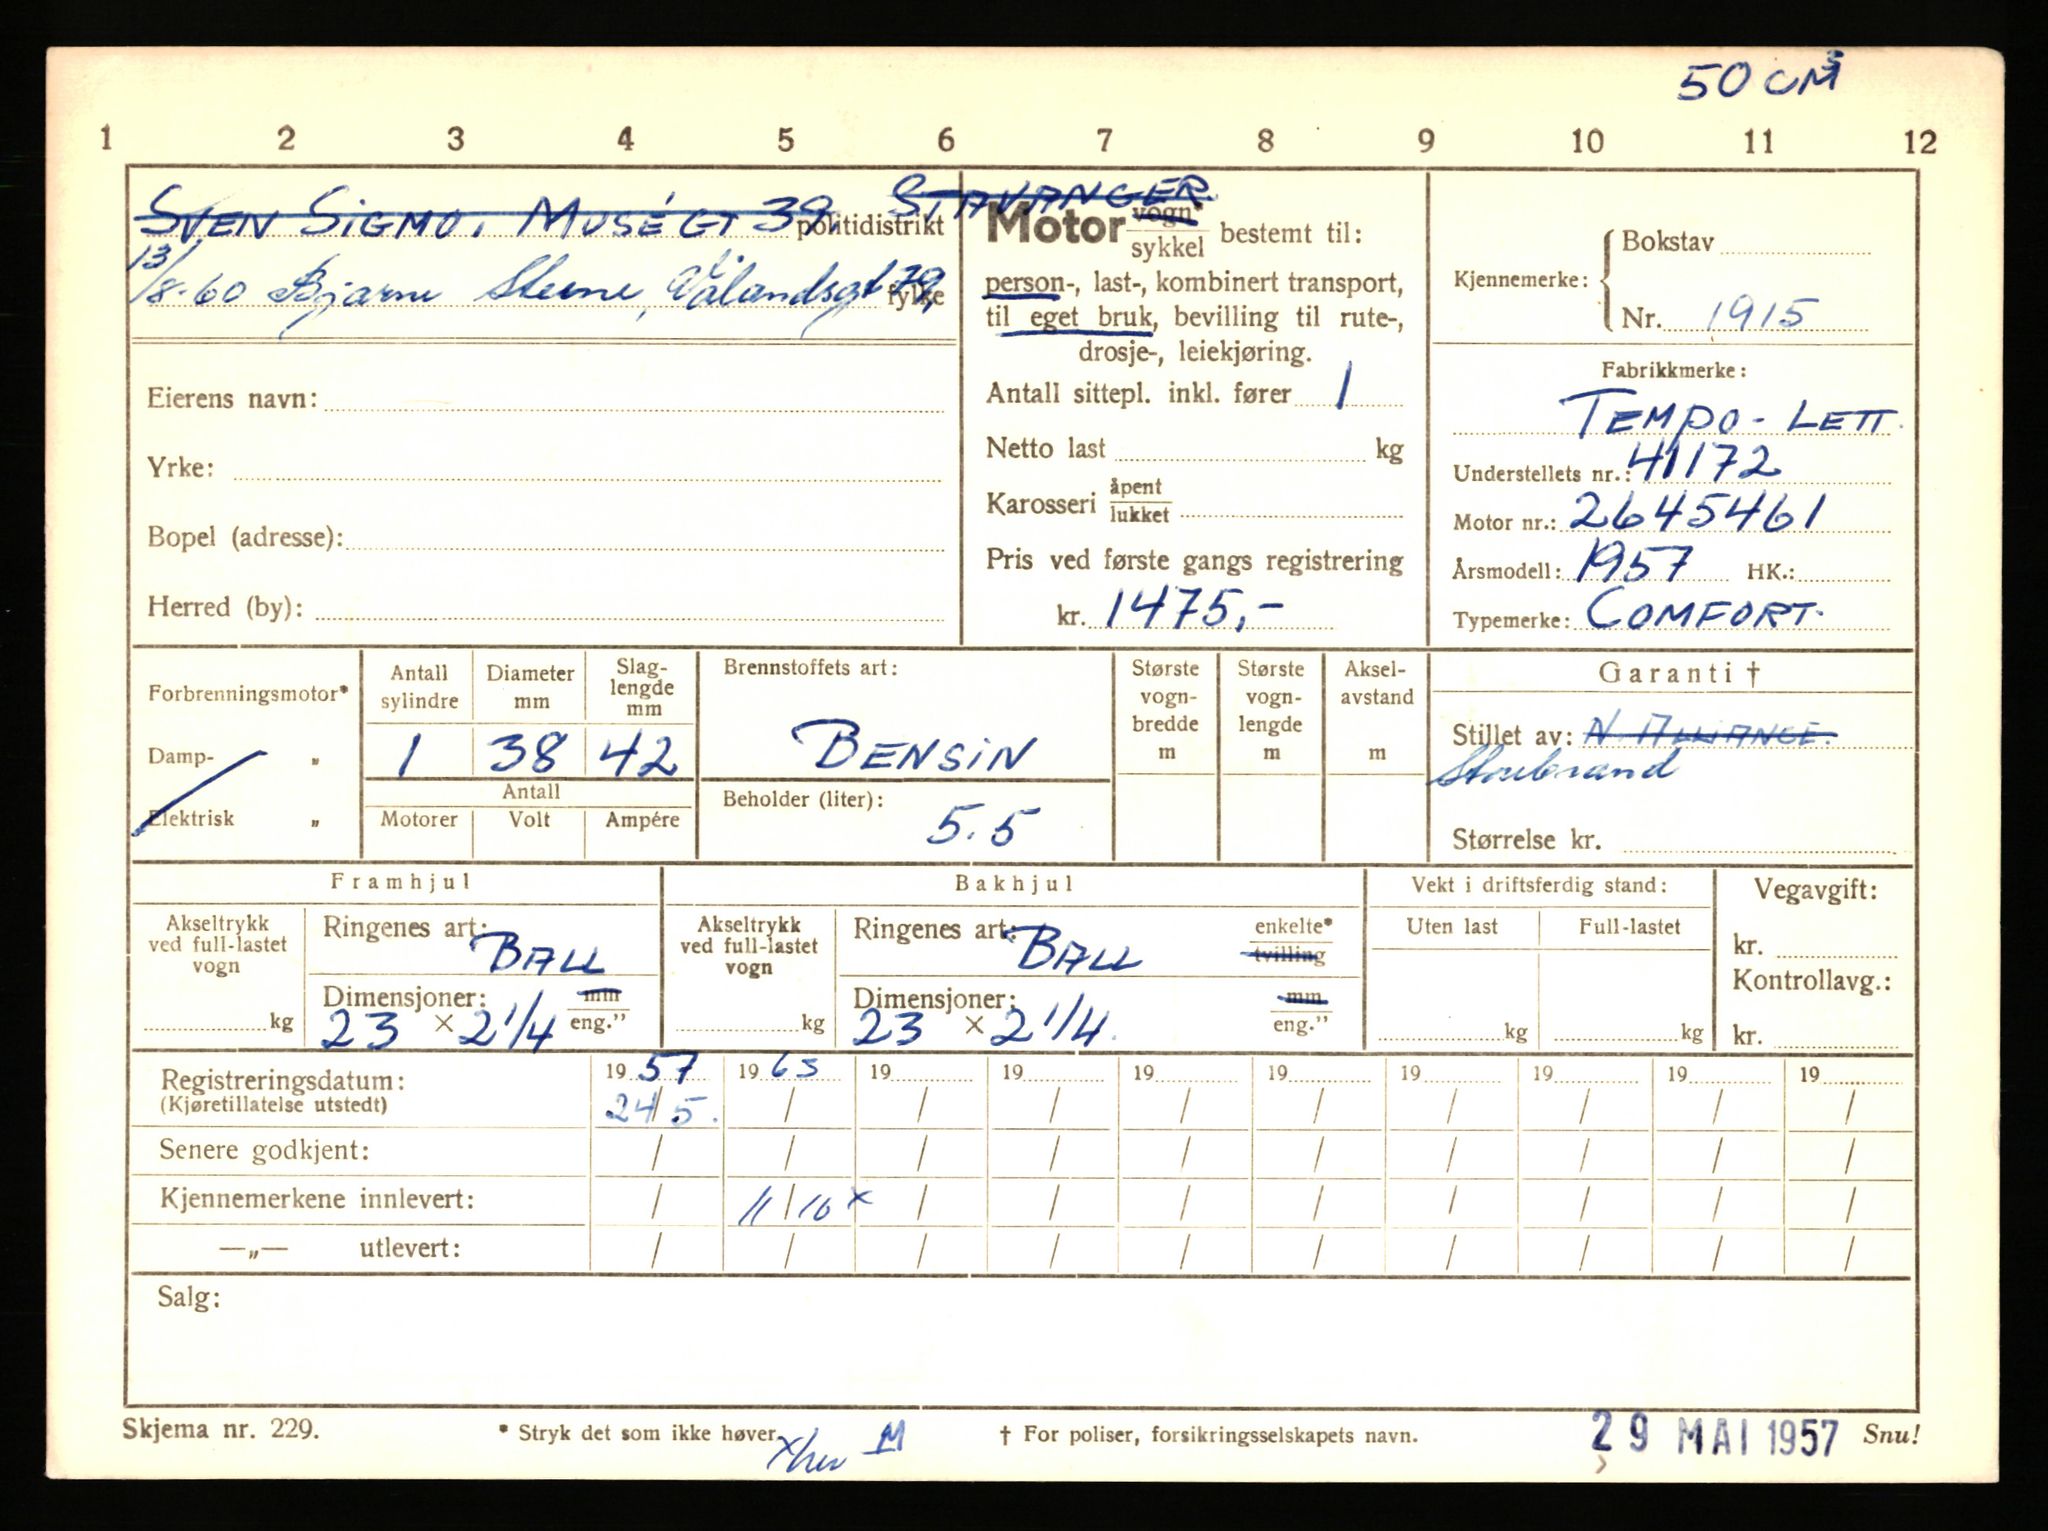 50 CM³
1 2 3 4 5 6 7 8 9 10 11 12
SVEN SIGMO, MUSÉGT 39. STAVANGER.
politidistrikt
13/8-60 Bjarne Steene, Vålandsgt 79,
fylke
Eierens navn:
Yrke:
Bopel (adresse):
Herred (by):
Motor vogn* sykkel bestemt til:
person-, last-, kombinert transport,
til eget bruk, bevilling til rute-,
drosje-, leiekjøring.
Antall sittepl. inkl. fører 1
Netto last kg
Karosseri åpent lukket
Pris ved første gangs registrering
kr. 1475,-
Kjennemerke: Bokstav
Nr. 1915
Fabrikkmerke:
TEMPO-LETT.
Understellets nr.: 41172
Motor nr.: 2645461
Årsmodell: 1957 HK.:
Typemerke: COMFORT.
Forbrenningsmotor*
Damp- „
Elektrisk „
Antall sylindre Diameter mm Slag-lengde mm
1 38 42
Antall
Motorer Volt Ampére
Brennstoffets art:
BENSIN
Beholder (liter):
5.5
Største vogn-bredde m
Største vogn-lengde m
Aksel-avstand m
Garanti †
Stillet av: N. ALLIANCE.
Storebrand
Størrelse kr.
Framhjul
Akseltrykk ved full-lastet vogn
kg
Ringenes art: BALL
Dimensjoner: mm eng.”
23 × 2 1/4
Bakhjul
Akseltrykk ved full-lastet vogn
kg
Ringenes art: BALL enkelte* tvilling
Dimensjoner: mm eng.”
23 × 2 1/4.
Vekt i driftsferdig stand:
Uten last Full-lastet
kg kg
Vegavgift:
kr.
Kontrollavg.:
kr.
Registreringsdatum: 1957 1963 19 19 19 19 19 19 19 19
(Kjøretillatelse utstedt) 24/5. / / / / / / / / /
Senere godkjent: / / / / / / / / / /
Kjennemerkene innlevert: / 11/10 x / / / / / / / /
—„— utlevert: / / / / / / / / / /
Salg:
Skjema nr. 229.
* Stryk det som ikke høver.
M
† For poliser, forsikringsselskapets navn.
29 MAI 1957
Snu!